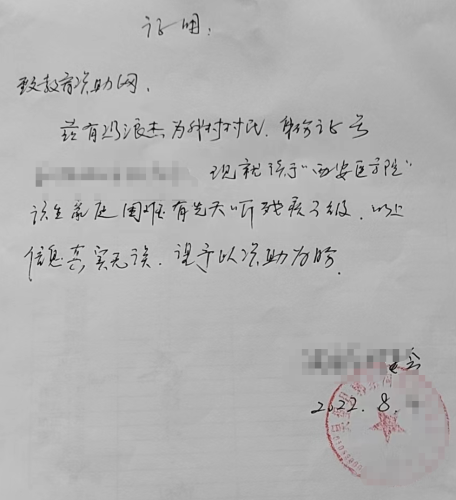 证明:
致教育资助网.
兹有冯浪杰为我村村民.身份证号
现就读于"西安医学院"
该生家庭困难有先天听残疾 级.以上
信息真实无误.望予以资助为盼.
委会
2022.8.